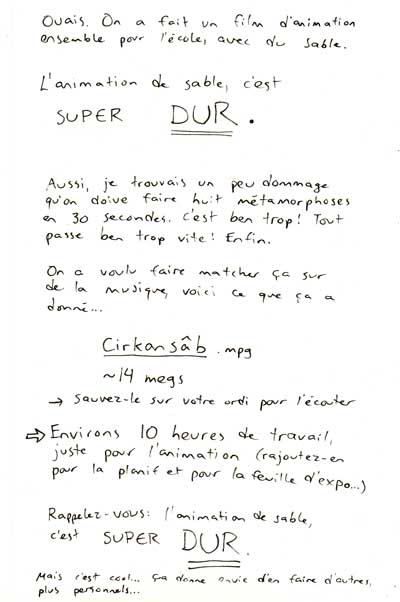 Ouais. On a fait un film d'animation
ensemble pour l'école, avec du sable.
L'animation de sable, c'est
SUPER DUR.
Aussi, je trouvais un peu dommage
qu'on doive faire huit métamorphoses
en 30 secondes. C'est ben trop! Tout
passe ben trop vite! Enfin.
On a voulu faire matcher ça sur
de la musique, voici ce que ça a
donné...
Cirkansâb .mpg
~14 megs
→ Sauvez-le sur votre ordi pour l'écouter
⇨ Environs 10 heures de travail,
juste pour l'animation (rajoutez-en
pour la planif et pour la feuille d'expo...)
Rappelez-vous: l'animation de sable,
c'est SUPER DUR.
Mais c'est cool... ça donne envie d'en faire d'autres,
plus personnels...